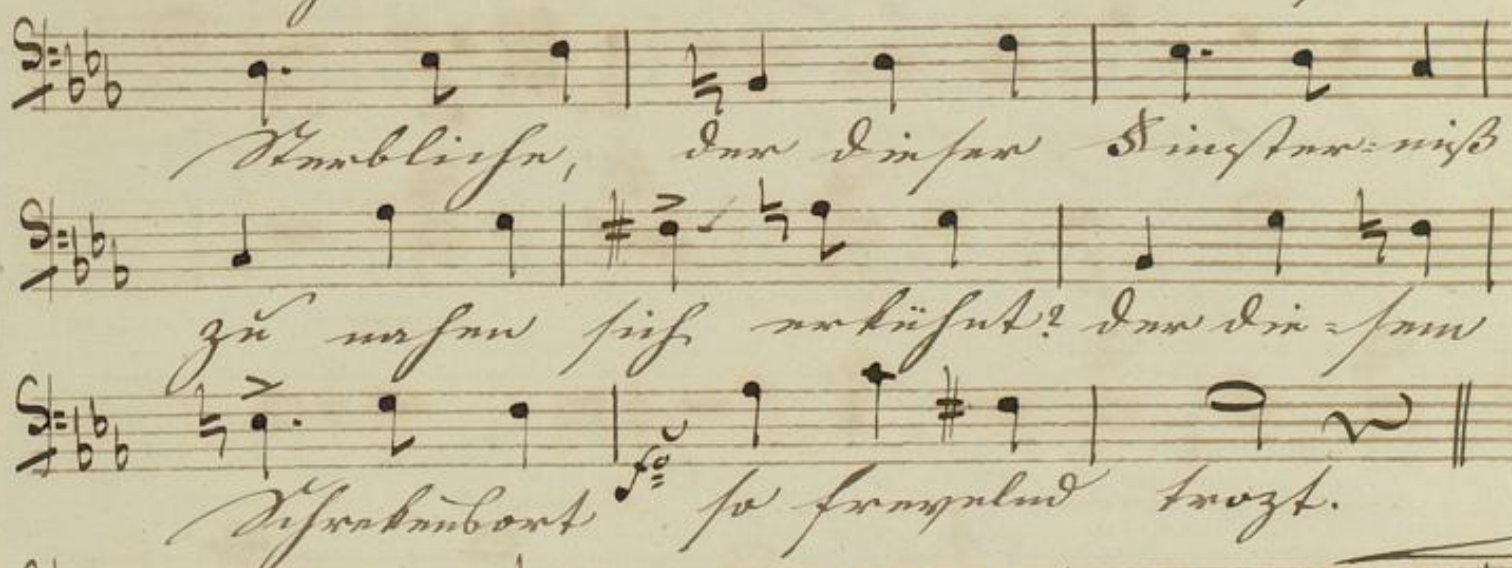 Sterbliche, der dieser Finster=niß
zu nahen sich erkühnt? der die=sem
fo
Schrekensort so frevelnd trozt.